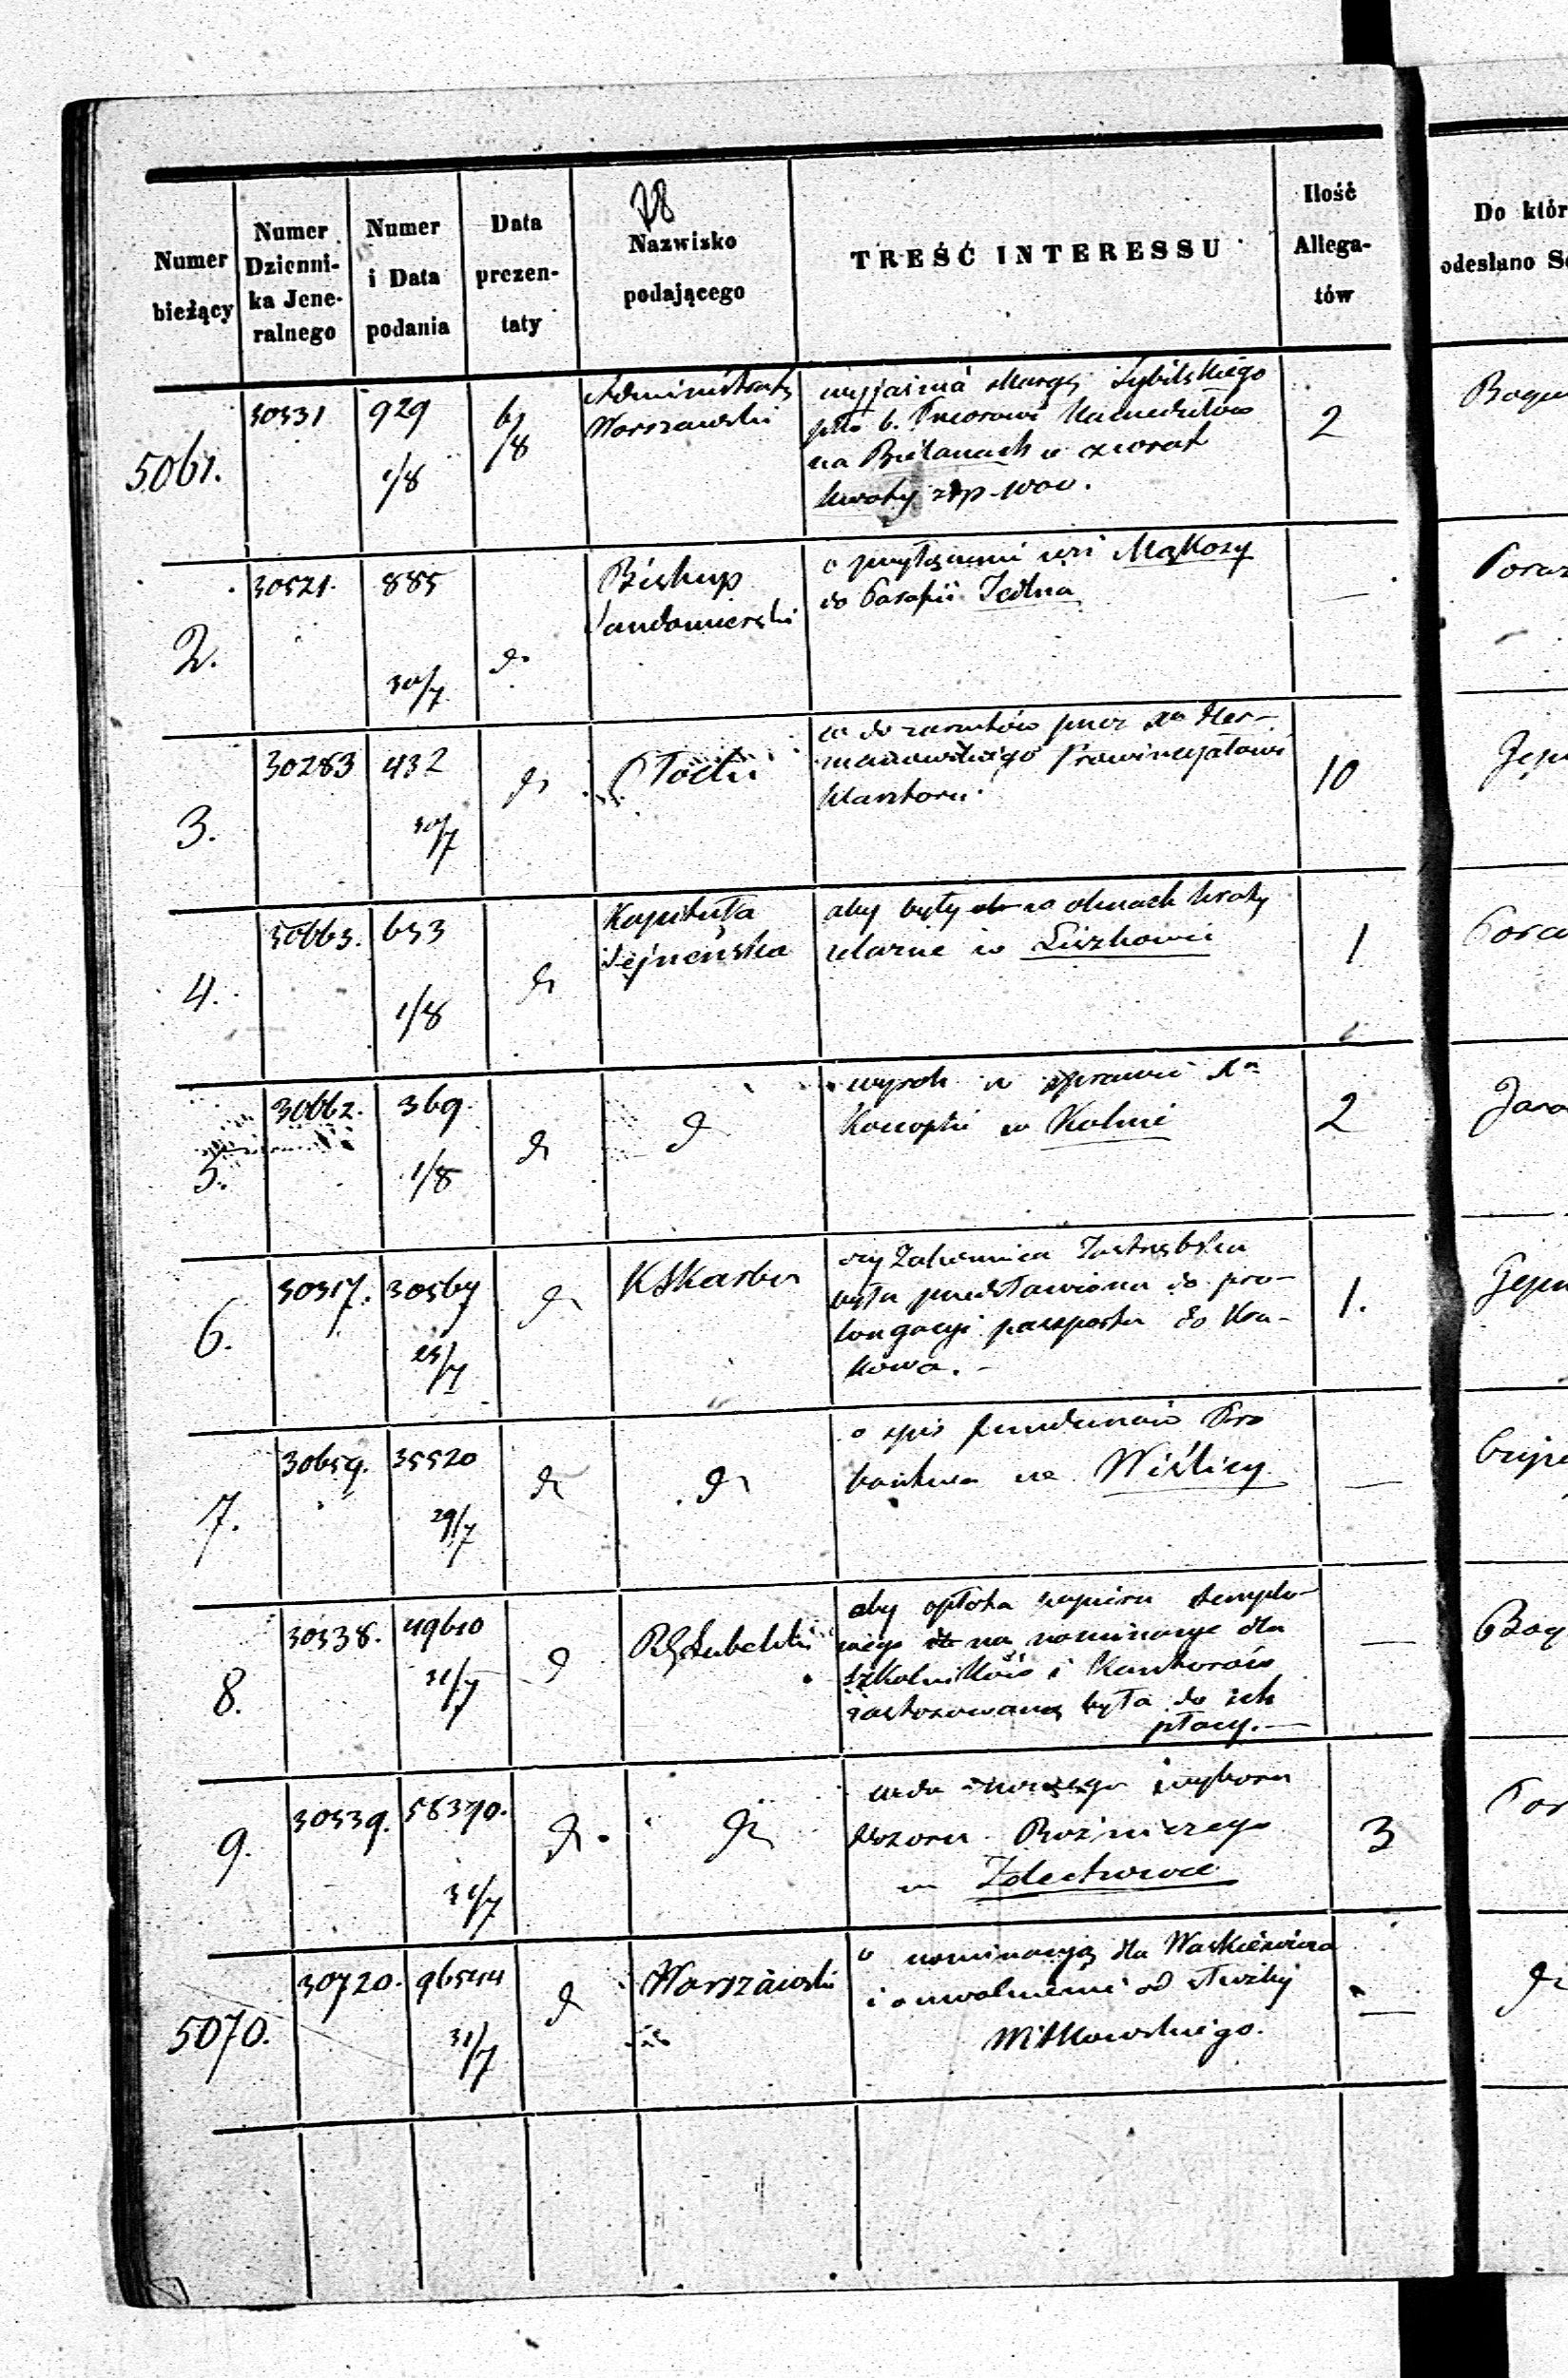 78
Numer bieżący
Numer Dzienni-ka Jene-ralnego
Numer i Data podania
Data prezen-taty
Nazwisko podającego
TREŚĆ INTERESSU
Ilość Allega-tów
Do któr
odesłano Se
5061.
30531
929
1/8
6/8
Administrat
Warszawski
wyjaśnia skargę Sybilskiego
plko b. Przeorowi Kamedułów
na Bielanach o zwrot
kwoty złp
2
2.
30521.
885
30/7
d
Biskup
Sandomierski
o przyłączenie wsi Mąkosy
do Parafii Jedlna
—
3.
30283
432
30/7
d
Płocki
co do zarzutów przez Xa Her-
manowskiego Prowincyałowi
klasztoru
10
4.
30663.
653
1/8
d
Kapituła
Sejneńska
aby były w oknach kraty
żelazne w Liszkowie
1
5.
30662.
369
1/8
d
d
wyrok w sprawie Xa
Konopki w Kolnie
2
6.
30517.
30567
25/7
d
KSkarbu
czy Zakonnica Jastrzębska
była przedstawiona do pro-
longacyi paszportu do Kra-
kowa. –
1.
7.
30659.
35520
29/7
d
d
o spis funduszów Pro
bostwa we Wiślicy
—
8.
30538.
49610
31/7
d
RG Lubelski
aby opłata papieru stemplo-
wego na nominacye dla
szkolników i Kantorów
zastosowaną była do ich
płacy. —
—
9.
30539.
58390.
31/7
d
d
co do nowego wyboru
dozoru Bożniczego
w Zdechowce
3
5070.
30720.
96544
31/7
d
Warszawski
o nominacyą dla Waskiewicza
i o uwolnienie od służby
Witkowskiego.
—